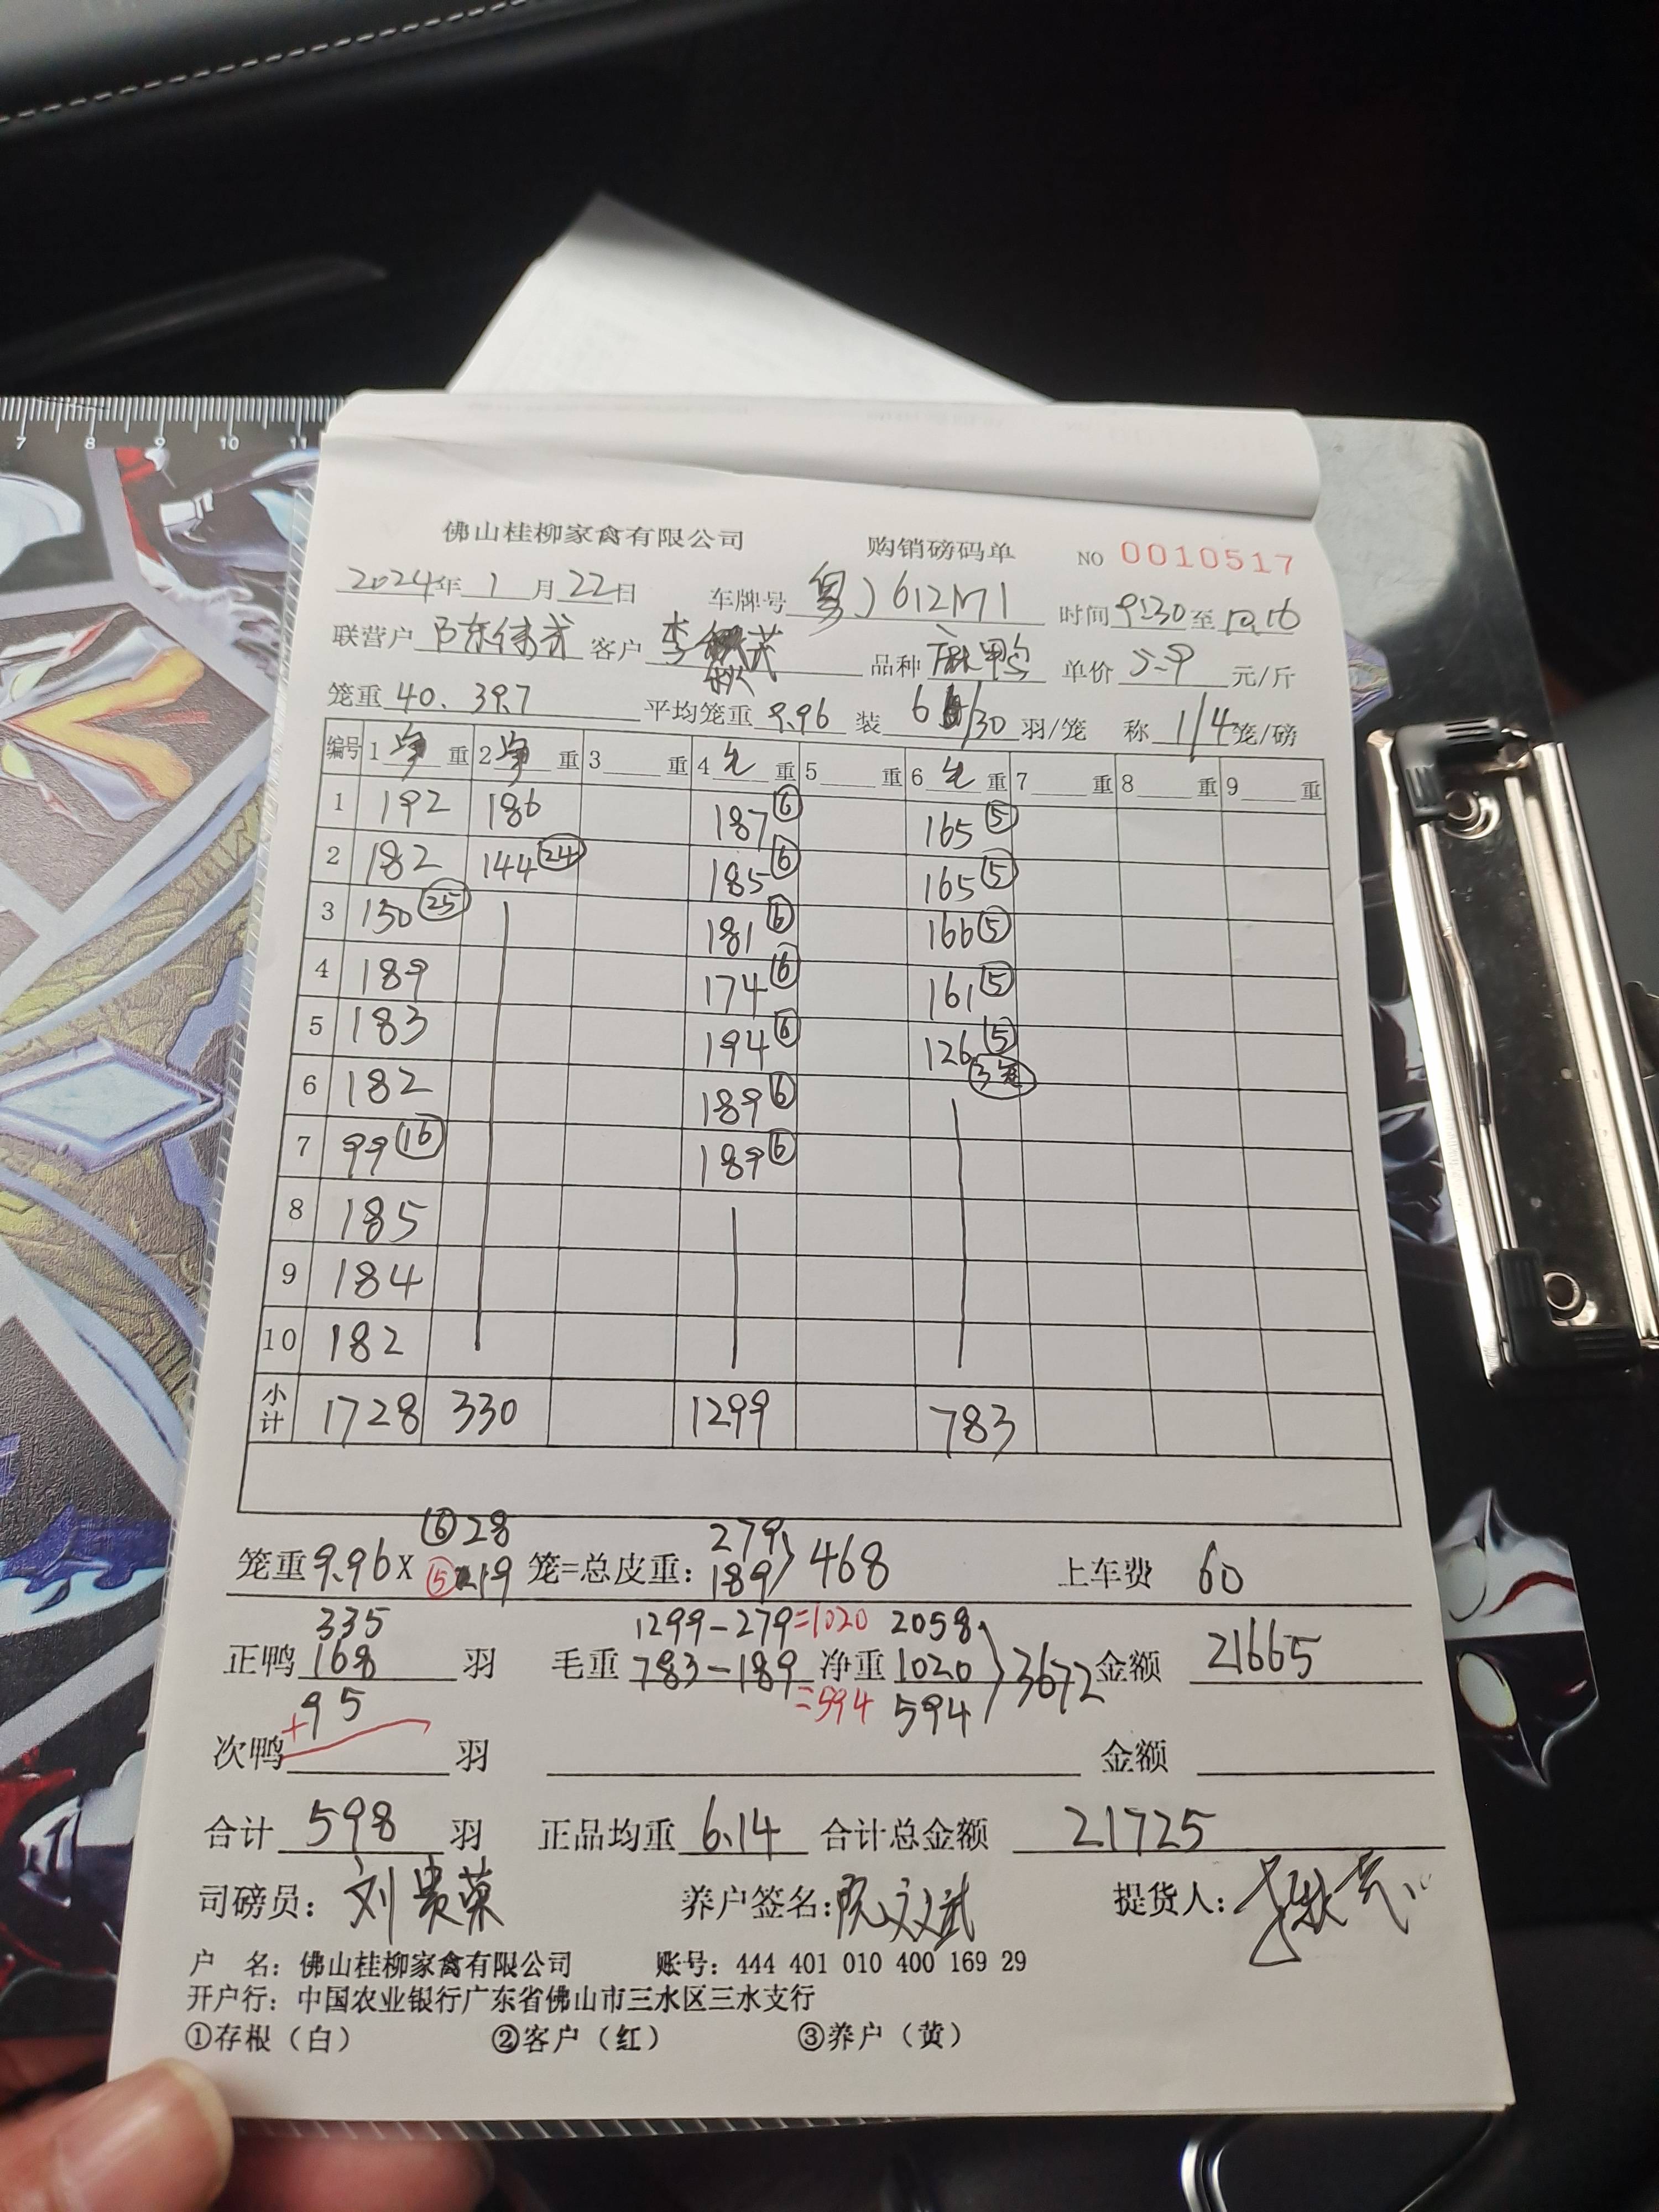 7 8 9 10 11
佛山桂柳家禽有限公司 购销磅码单 NO 0010517
2024年 1 月 22日 车牌号 粤J612M1 时间 9:30 至 10.16
联营户 客户 李 芡 品种 麻鸭 单价 5.9 元/斤
笼重 40. 39.7 平均笼重 9.96 装 6 /30 羽/笼 称 1/4 笼/磅
编号 1 净 重 2 净 重 3 重 4 毛 重 5 重 6 毛 重 7 重 8 重 9 重
1 192 186 187 ⑥ 165 ⑤
2 182 144 ㉔ 185 ⑥ 165 ⑤
3 150 ㉕ 181 ⑥ 166 ⑤
4 189 174 ⑥ 161 ⑤
5 183 194 ⑥ 126 ⑤
6 182 189 ⑥ 3笼
7 99 ⑯ 189 ⑥
8 185
9 184
10 182
小计 1728 330 1299 783
⑥ 28 279
笼重 9.96 X ⑤ 19 笼=总皮重: 189 468 上车费 60
335 1299-279=1020 2058
正鸭 168 羽 毛重 783-189 净重 1020 3672 金额 21665
+95 =594 594
次鸭 羽 金额
合计 598 羽 正品均重 6.14 合计总金额 21725
司磅员: 刘贵荣 养户签名: 阮文武 提货人:
户 名: 佛山桂柳家禽有限公司 账号: 444 401 010 400 169 29
开户行: 中国农业银行广东省佛山市三水区三水支行
①存根（白） ②客户（红） ③养户（黄）